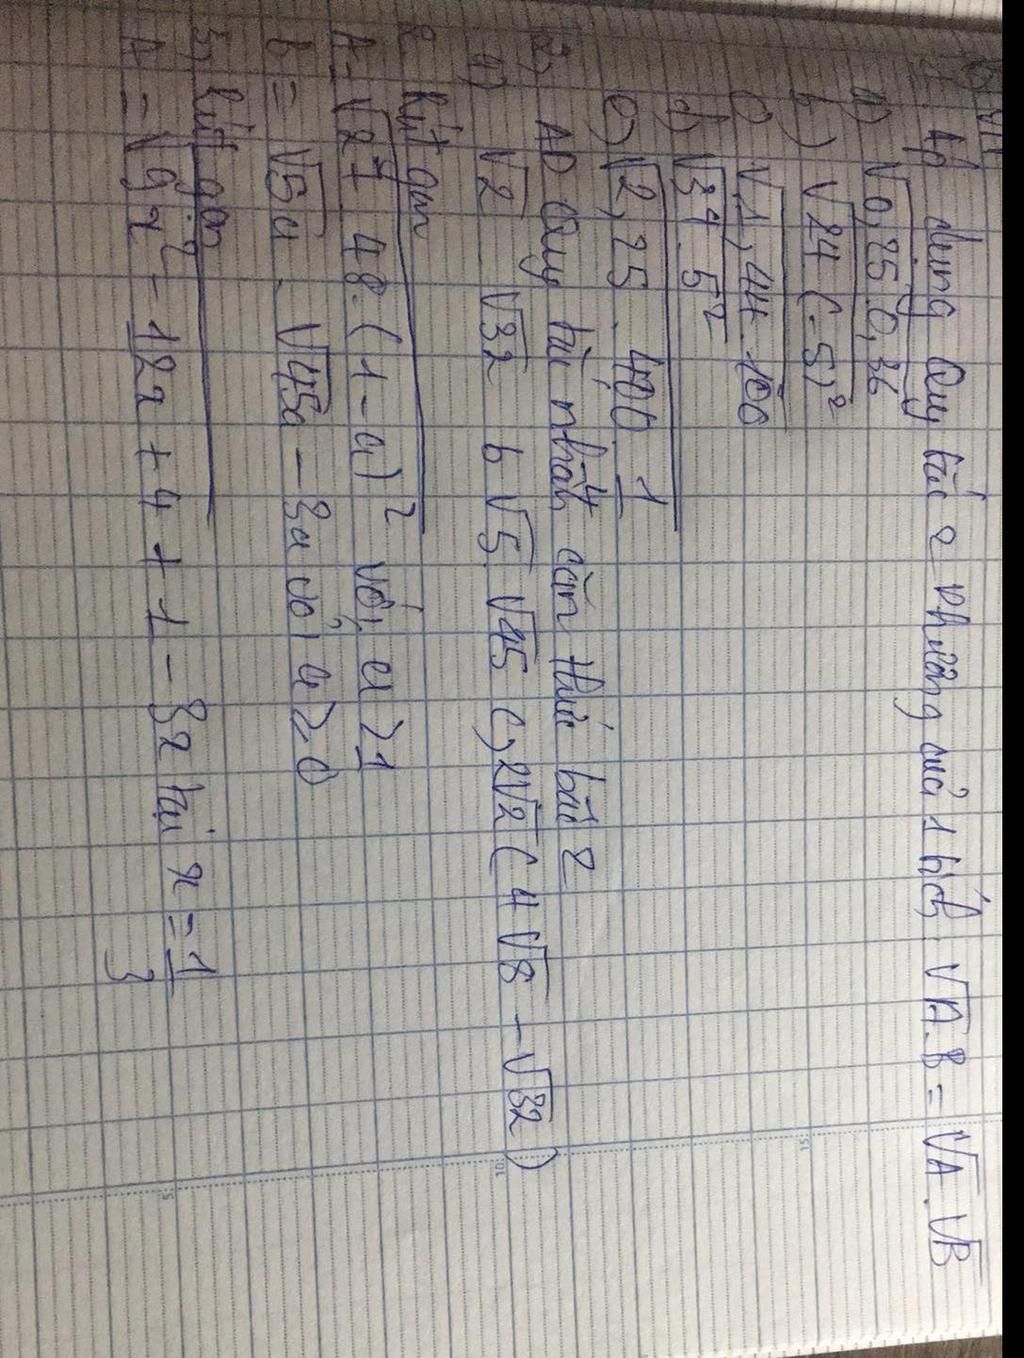 1. Áp dụng Quy tắc 2 phương của 1 tích √A.B = √A.√B
a) √0,25.0,36
b) √24.(-5)²
c) √1,44.100
d) √3⁴.5²
e) √2,25.400.1/4
2, AD Quy tắc nhân căn thức bậc 2
a) √2 √32 b √5.√45 c, 2√2(4√8 - √32)
2 Rút gọn
A = √27.48.(1-a)² với a>1
b = √5a.√45a - 3a với a≥0
3, Rút gọn
A = √9x²-12x+4 + 1 - 3x tại x = 1/3